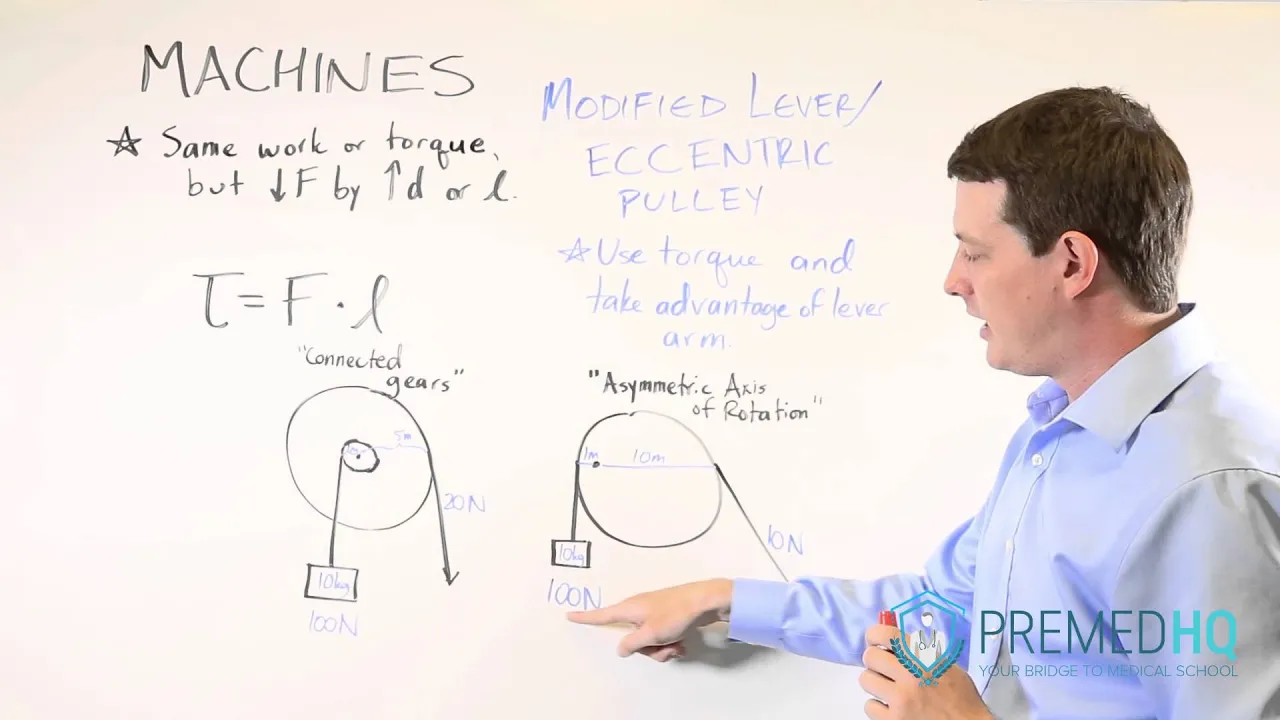 MACHINES
☆ Same work or torque,
but ↓F by ↑d or l.
τ = F · l
"Connected
gears"
5m
20N
10kg
100N
MODIFIED LEVER/
ECCENTRIC
PULLEY
☆ Use torque and
take advantage of lever
arm.
"Asymmetric Axis
of Rotation"
1m
10m
10N
10kg
100N
PREMEDHQ
YOUR BRIDGE TO MEDICAL SCHOOL